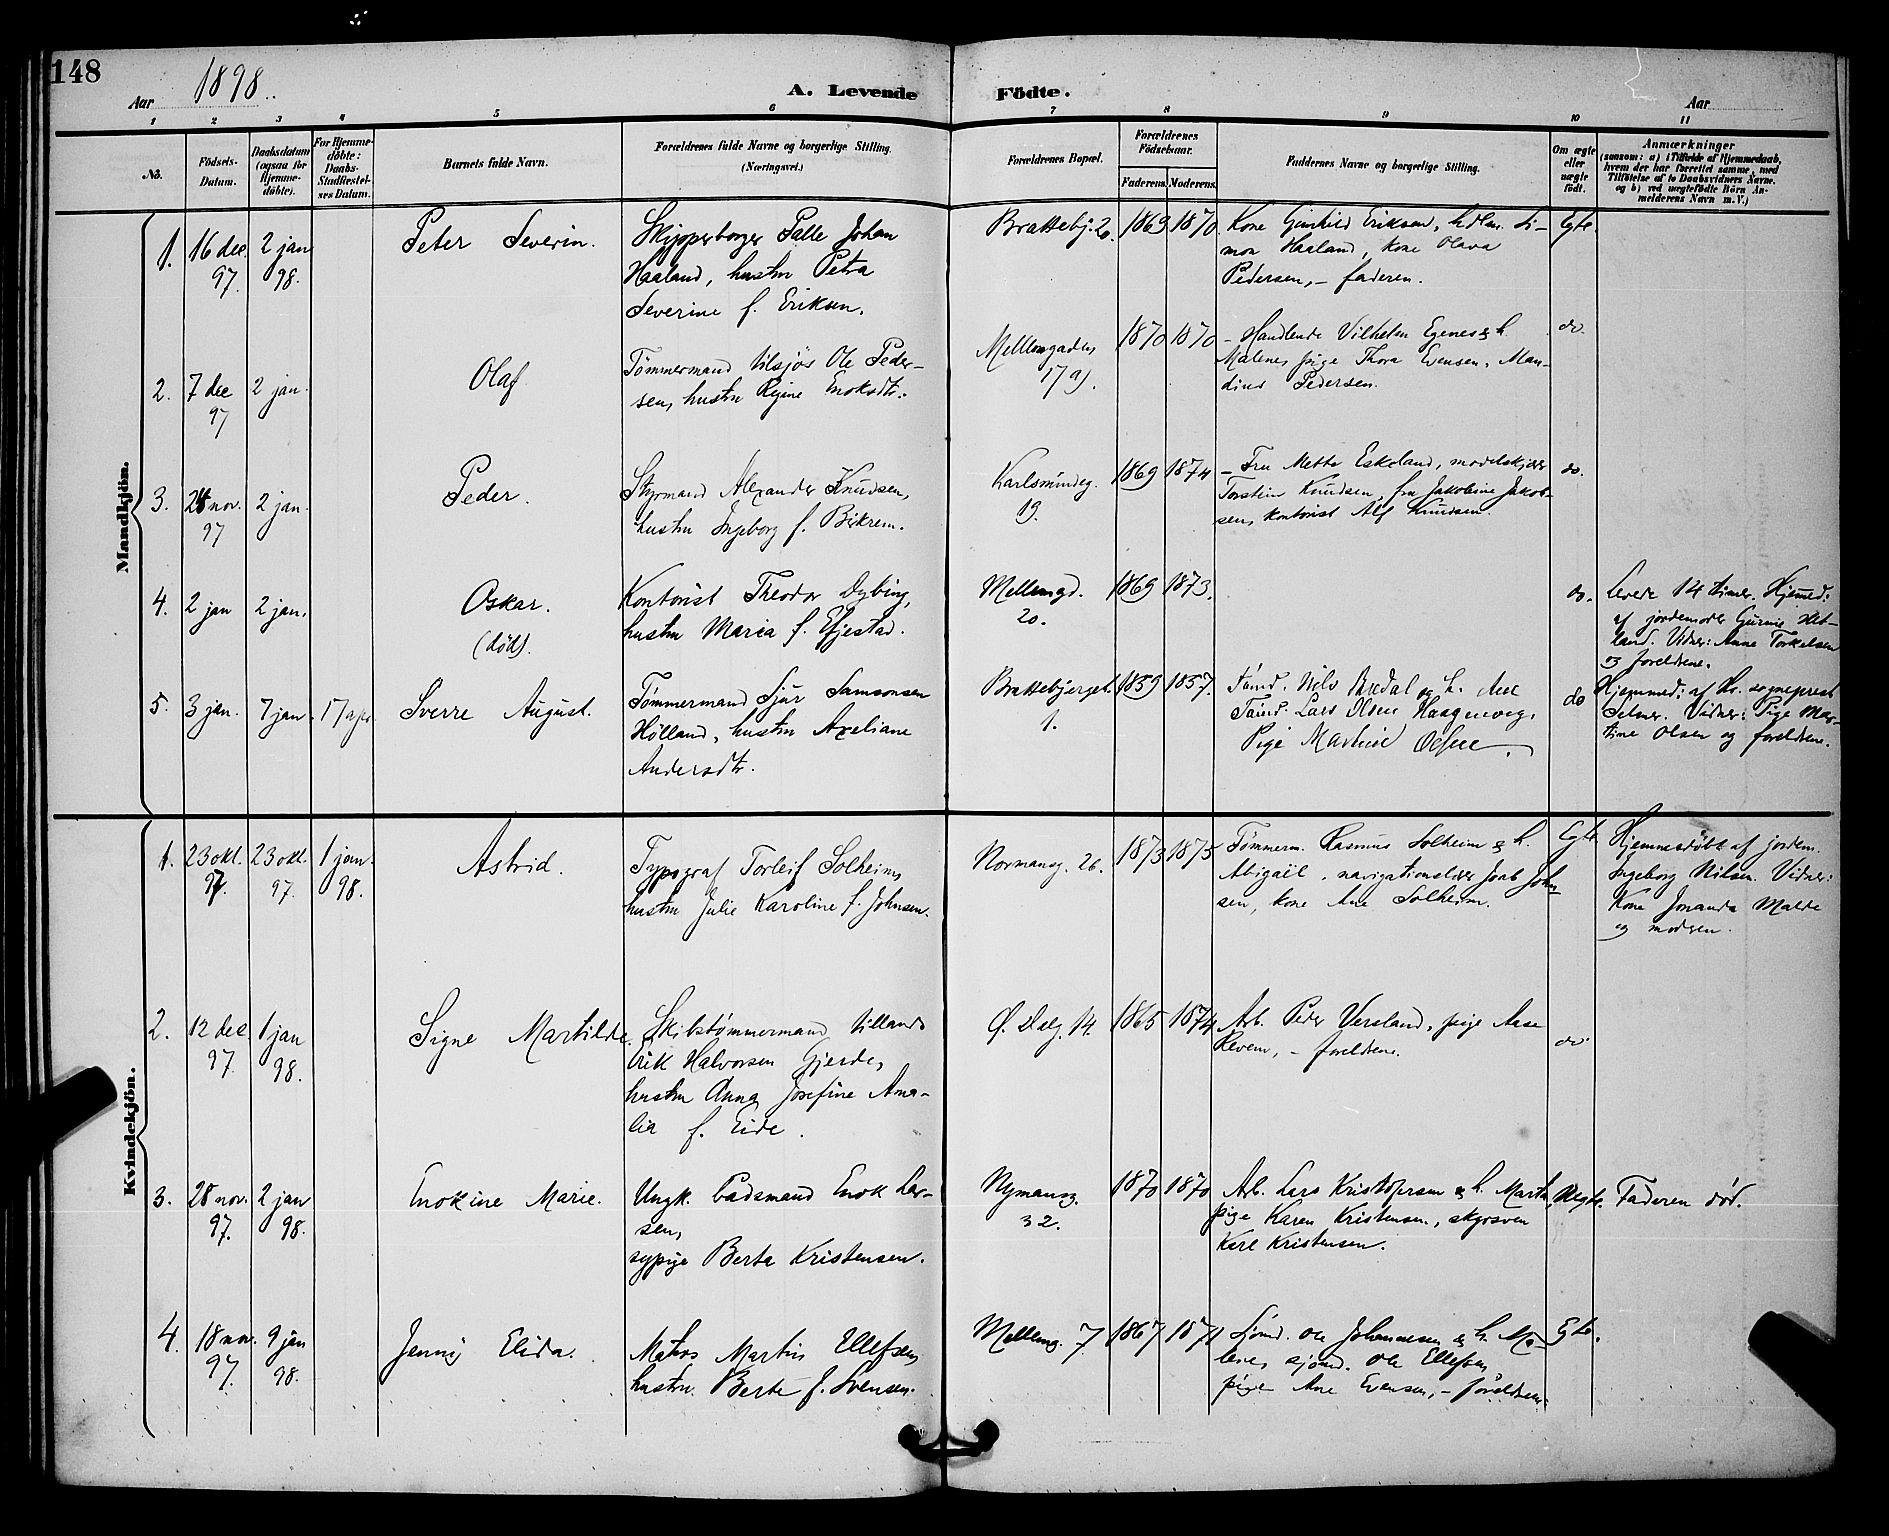 148
Aar 1898.
A. Levende Födte.
Aar
1 2 3 4 5 6 7 8 9 10 11
No.
Födsels-
Datum.
Daabsdatum
(ogsaa for
Hjemme-
döbte).
For Hjemme-
döbte:
Daabs-
Stadfæstel-
ses Datum.
Barnets fulde Navn.
Forældrenes fulde Navne og borgerlige Stilling.
(Næringsvei.)
Forældrenes Bopæl.
Forældrenes
Födselsaar.
Faderens. Moderens.
Faddernes Navne og borgerlige Stilling.
Om ægte
eller
uægte
födt.
Anmærkninger
(saasom: a) i Tilfælde af Hjemmedaab,
hvem der har forrettet samme, med
Tilföielse af to Daabsvidners Navne,
og b) ved uægtefödte Börn An-
melderens Navn m. V.)
Mandkjön.
1. 16 dec. 97. 2 jan 98.
Peter Severin.
Skipperborger Palle Johan
Haaland, hustru Petra
Severine f. Eriksen.
Brattebj. 2. 1869 1870
Kone Gunhild Eriksen, Si-
mon Haaland, kone Olava
Pedersen, – faderen.
Egte
2. 7 dec 97 2 jan.
Olaf
Tømmermand Ole Peder-
sen, hustru Regine Enoksdtr.
Mellemgaden
17 a). 1870 1870
– Handlende Vilhelm Egenes & h.
Malene, pige Thora Evensen,
Pedersen.
do.
3. 24 nov. 97 2 jan.
Peder.
Styrmand Alexander Knudsen,
hustru Ingeborg f. Vikrem.
Karlsmindeg.
19. 1869 1874
– Fru Mette Eskeland,
Torstein Knudsen, fru Jakobine Jakob-
sen, kontorist Alf Knudsen.
do.
4. 2 jan 2 jan.
Oskar.
(død).
Kontorist Theodor Dybing,
hustru Maria f. Efjestad.
Mellemgd.
20. 1869 1873.
do.
Levede 14 timer. Hjemmed:
af jordemoder Gurine Het-
land. Vidner: Anne Torkelsen
og foreldrene.
5. 3 jan. 7 jan. 17 apr.
Sverre August.
Tømmermand Sjur Samsonsen
Hølland, hustru Axeliane
Andersdtr.
Brattebjerget
1. 1859 1857.
Tømd. Nils Bredal og h. Ane
Tømd. Lars Olsen Haagenveg,
Pige Martine Olsen.
do
Hjemmed: af Hr. sogneprest
Selmer. Vidner: Pige Mar-
tine Olsen og foreldrene.
Kvindekjön.
1. 23 okt. 97. 23 okt. 97 1 jan. 98.
Astrid.
Typograf Torleif Solheim,
hustru Julie Karoline f. Johnsen.
Normansg. 26. 1873 1875
Tømmerm. Rasmus Solheim & h.
Abigaël, navigationslærer Joab John-
sen, kone Ane Solheim.
Egte
Hjemmedøbt af jordem.
Ingeborg Nilsen. Vidner:
Kone Jonanda Malde
og moderen.
2. 12 dec. 97 1 jan 98.
Signe Martilde.
Skibstømmermand
Erik Halvorsen Gjerde,
hustru Anna Josefine Ama-
lia f. Eide.
Ø. 14. 1865 1874
Arb. Peder Versland, pige Aase
Revem, – foreldrene.
do.
3. 28 nov. 97. 2 jan 98.
Enokine Marie.
Ungk. baadsmand Enok Lar-
sen,
sypige Berta Kristensen.
Nymansg.
32. 1870 1870
Arb. Lars Kristofersen & h. Marta,
pige Karen Kristensen,
Karl Kristensen.
Uegte.
Faderen død.
4. 18 nov. 97. 9 jan 98.
Jenny Elida.
Matros Martin Ellefsen,
hustru Berte f. Svensen.
Mellemg. 7. 1867 1871
Sjømd. Ole Johannesen & h. Ma-
lene, sjømd. Ole Ellefsen,
pige Ane Evensen, – foreldrene.
Egte.